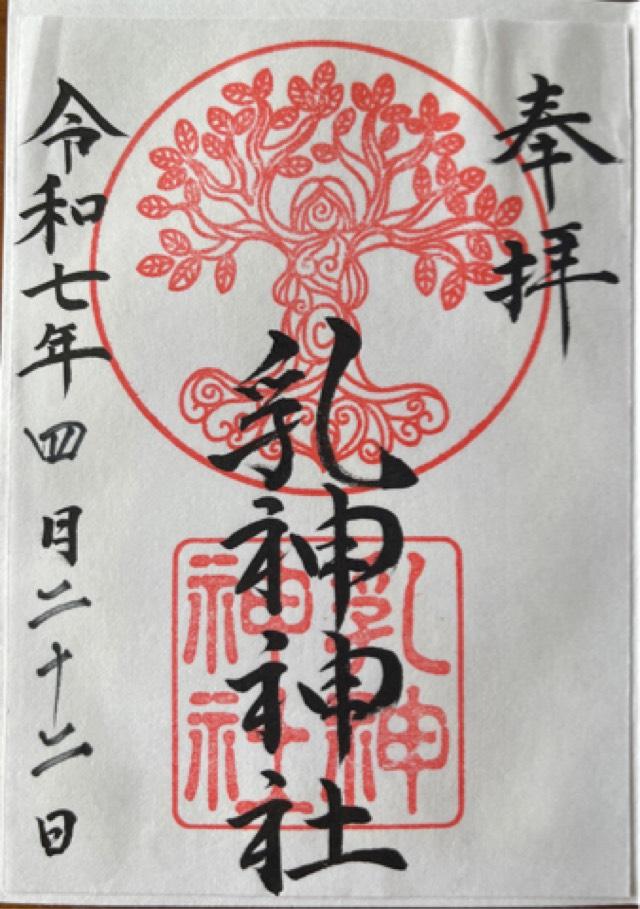 奉拝
乳神神社
乳神
神社
令和七年四月二十二日